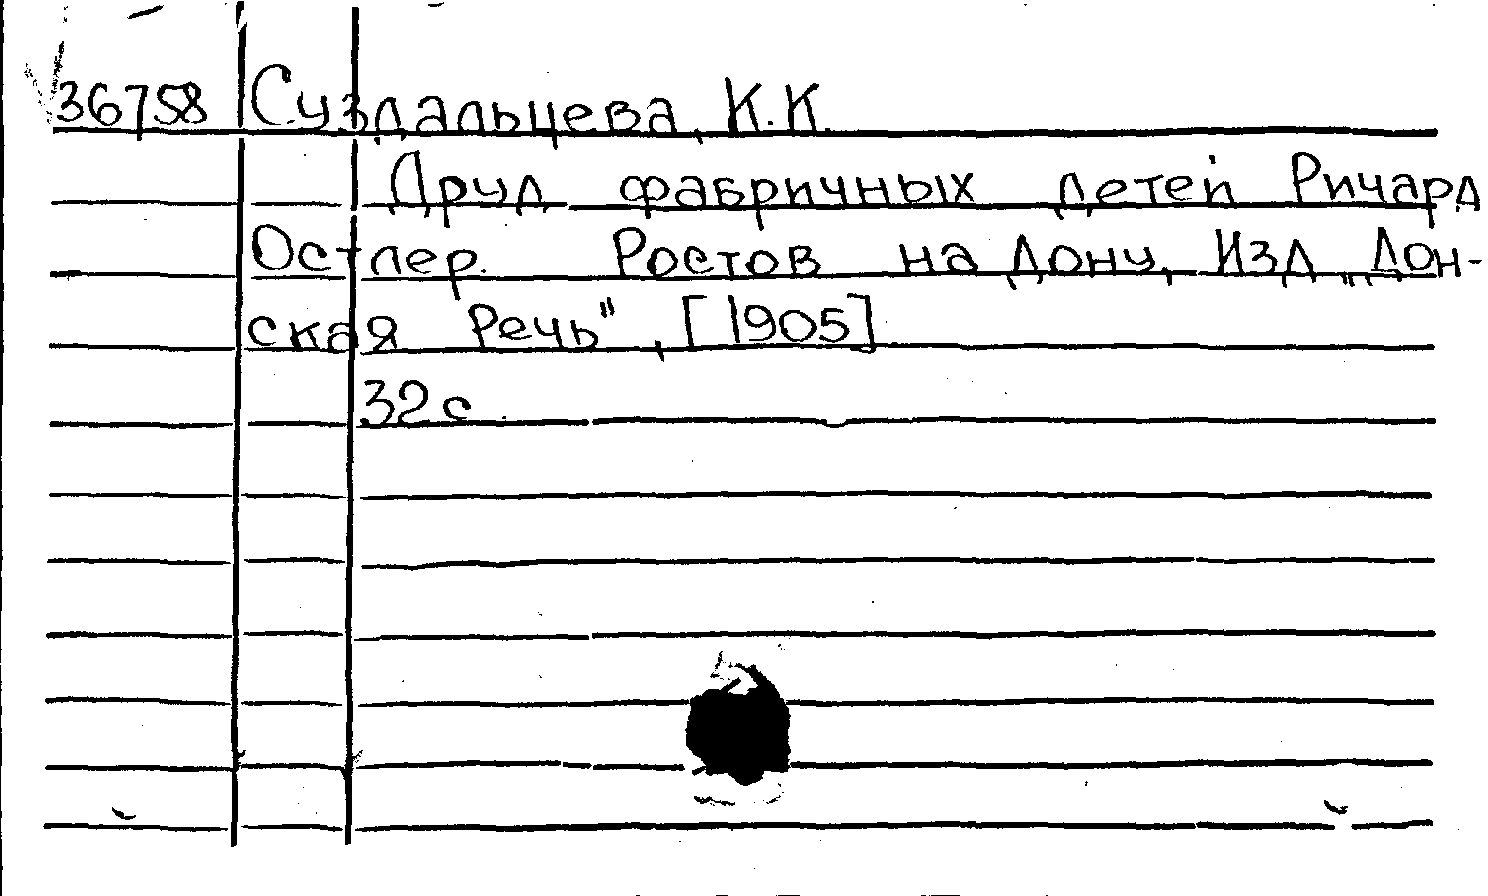 36758 Суздальцева, К.К.
Друд фабричных детей Ричард
Остлер. Ростов на Дону, Изд. „Дон-
ская Речь", [1905]
32 с.